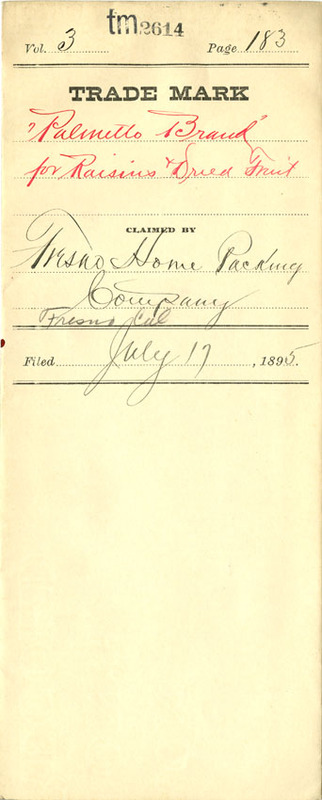 tm2614
Vol. 3 Page 183
TRADE MARK
"Palmetto Brand"
for Raisins & Dried Fruit
CLAIMED BY
Fresno Home Packing
Company
Fresno Cal
Filed July 17, 1895.